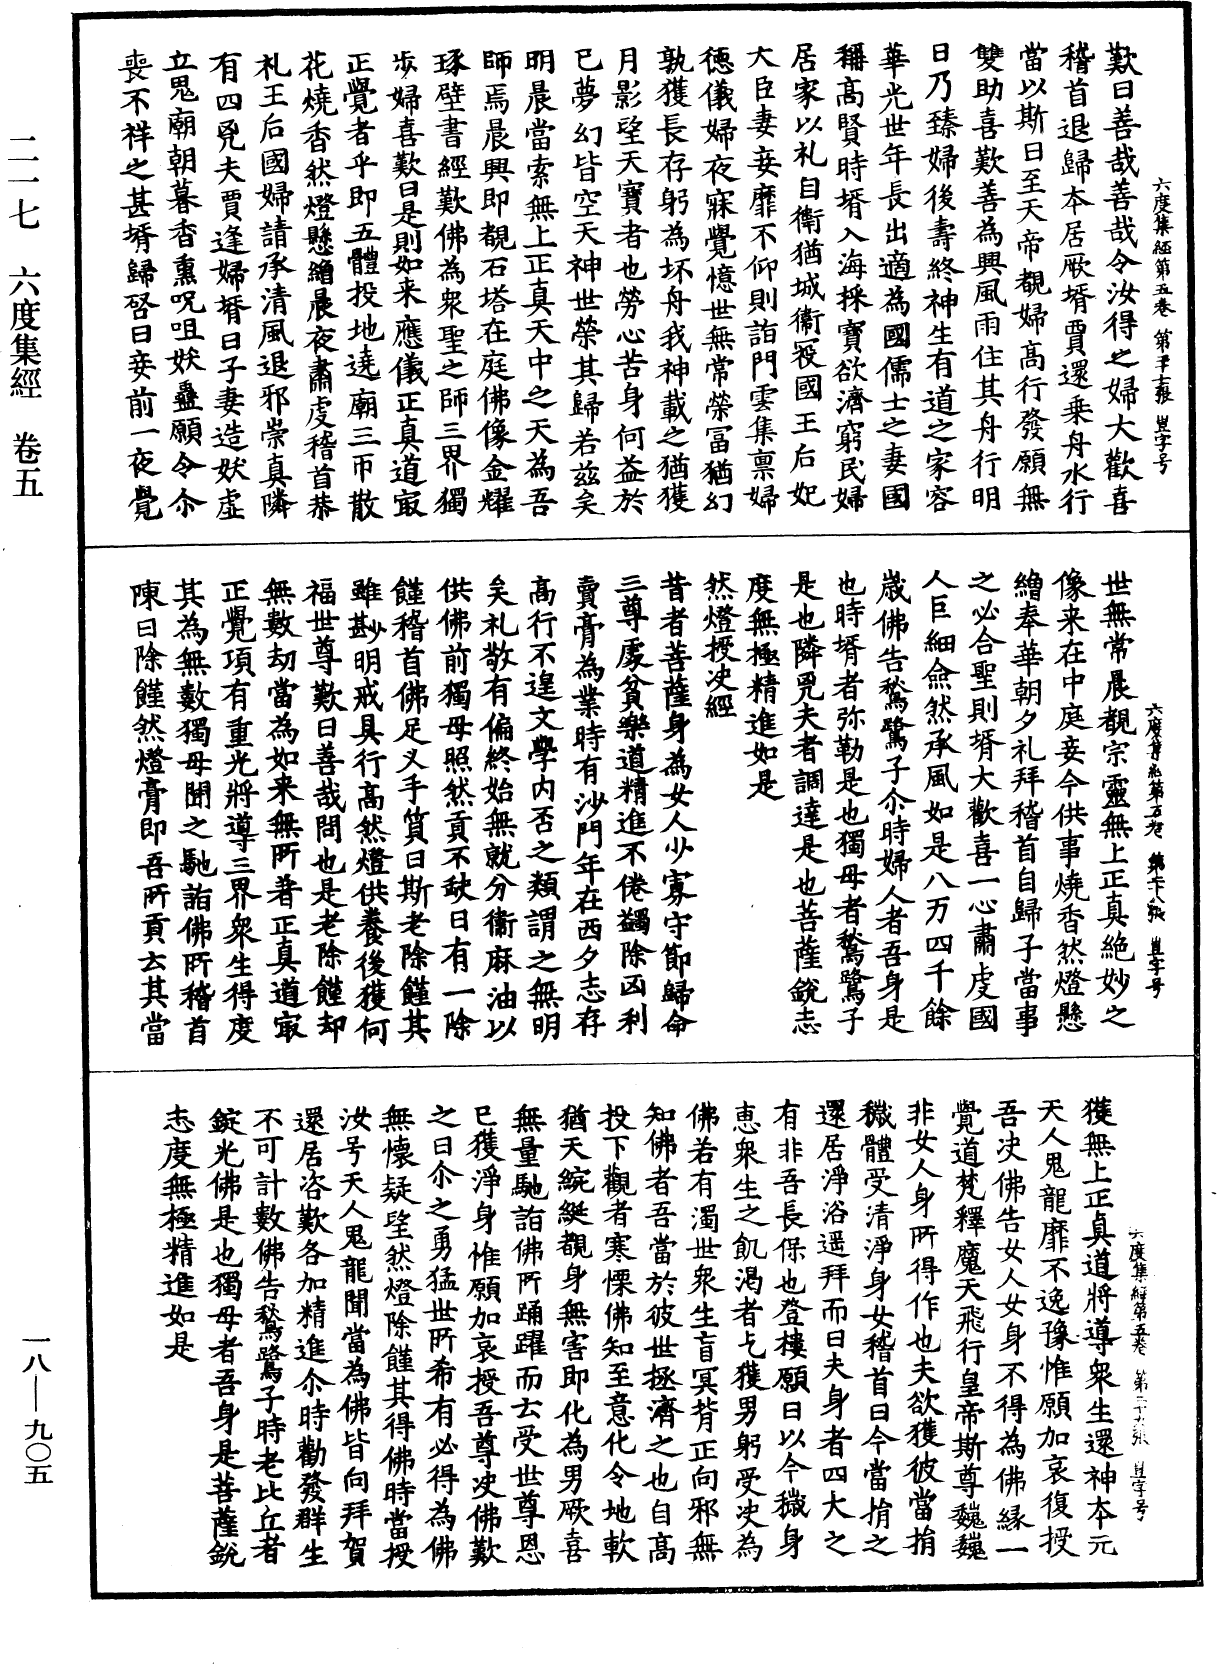 二一七　六度集經　卷五
六度集經第五卷　第　張　豈字号
歎曰善哉善哉令汝得之婦大歡喜
稽首退歸本居厥壻賈還乗舟水行
當以斯日至天帝覩婦高行發願無
雙助喜歎善為興風雨住其舟行明
日乃臻婦後壽終神生有道之家容
華光世年長出適為國儒士之妻國
稱高賢時壻入海採寶欲濟窮民婦
居家以礼自衛猶城衛寇國王后妃
大臣妻妾靡不仰則詣門雲集禀婦
德儀婦夜寐覺憶世無常榮冨猶幻
孰獲長存躬為坏舟我神載之猶獲
月影望天寶者也勞心苦身何益於
已夢幻皆空天神世榮其歸若兹矣
明晨當索無上正真天中之天為吾
師焉晨興即覩石塔在庭佛像金耀
琢壁書經歎佛為衆聖之師三界獨
步婦喜歎曰是則如来應儀正真道㝡
正覺者乎即五體投地遶廟三帀散
花燒香然燈懸繒晨夜肅虔稽首恭
礼王后國婦請承清風退邪崇真隣
有四㐫夫賈逢婦壻曰子妻造妖虛
立鬼廟朝暮香熏呪咀妖蠱願令尒
喪不祥之甚壻歸啓曰妾前一夜覺
六度集經第五卷　第二十八張　豈字号
世無常晨覩宗靈無上正真絶妙之
像来在中庭妾今供事燒香然燈懸
繒奉華朝夕礼拜稽首自歸子當事
之必合聖則壻大歡喜一心肅虔國
人巨細僉然承風如是八万四千餘
歲佛告鶖鷺子尒時婦人者吾身是
也時壻者弥勒是也獨母者鶖鷺子
是也隣㐫夫者調達是也菩薩銳志
度無極精進如是
然燈授決經
昔者菩薩身為女人少寡守節歸命
三尊處貧樂道精進不倦蠲除凶利
賣膏為業時有沙門年在西夕志存
高行不遑文學内否之類謂之無明
矣礼敬有偏終始無就分衛麻油以
供佛前獨母照然貢不缺日有一除
饉稽首佛足叉手質曰斯老除饉其
雖尠明戒具行高然燈供養後獲何
福世尊歎曰善哉問也是老除饉却
無數劫當為如来無所著正真道㝡
正覺項有重光將導三界衆生得度
其為無數獨母聞之馳詣佛所稽首
陳曰除饉然燈膏即吾所貢云其當
六度集經第五卷　第二十九張　豈字号
獲無上正真道將導衆生還神本元
天人鬼龍靡不逸豫惟願加哀復授
吾決佛告女人女身不得為佛緣一
覺道梵釋魔天飛行皇帝斯尊巍巍
非女人身所得作也夫欲獲彼當捐
穢體受清淨身女稽首曰今當捐之
還居淨浴遥拜而曰夫身者四大之
有非吾長保也登樓願曰以今穢身
恵衆生之飢渇者乞獲男躬受決為
佛若有濁世衆生盲冥背正向邪無
知佛者吾當於彼世拯濟之也自高
投下觀者寒慄佛知至意化令地軟
猶天綩綖覩身無害即化為男厥喜
無量馳詣佛所踊躍而去受世尊恩
已獲淨身惟願加哀授吾尊決佛歎
之曰尒之勇猛世所希有必得為佛
無懷疑望然燈除饉其得佛時當授
汝号天人鬼龍聞當為佛皆向拜賀
還居咨歎各加精進尒時勸發群生
不可計數佛告鶖鷺子時老比丘者
錠光佛是也獨母者吾身是菩薩銳
志度無極精進如是
一八—九〇五